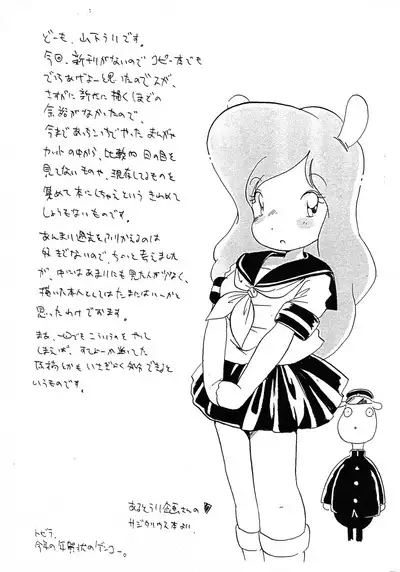 どーも、山下うりです。
今回、新刊がないので コピー本でも
でっちあげよーと思ったのでスが、
さすがに新たに描くほどの
余裕がなかったので、
今まであちこちでやった まんがや
カットの中から、比較的 日の目を
見てないものや、現存してるものを
集めて本にしちゃえという きわめて
しょうもないものです。
あんまり過去をふりかえるのは
好きでないので、ちょいと考えました
が、中にはあまりにも見た人が少なく、
描いた本人としてはたまにはいーかと
思ったわけであります。
まあ、一回でもこういうのをやって
しまえば、すてよーか迷ってた
原稿もいさぎよく処分できると
いうものです。
あるとうり企画さんの
サジタリウス本より
トビラ、
今年の年賀状のゲンコー。